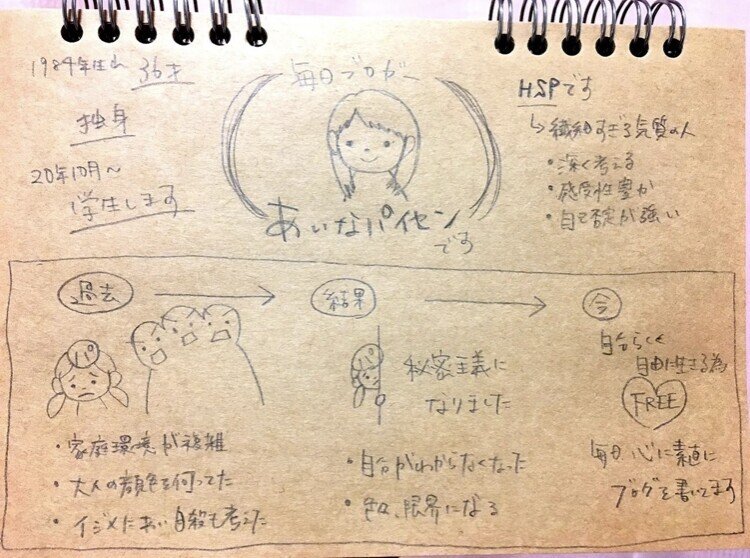 1984年生れ 36才
独身
20年10月〜
学生します
毎日ブロガー
あいなパイセン
です
HSPです
↳繊細すぎる気質の人
・深く考える
・感受性豊か
・自己否定が強い
過去
結果
今
パ
・家庭環境が複雑
・大人の顔色を伺ってた
・イジメにあい自殺も考えた
パ
秘密主義に
なりました
・自分がわからなくなった
・色々、限界になる
自分らしく
自由に生きる為
FREE
毎日心に素直に
ブログを書いてます